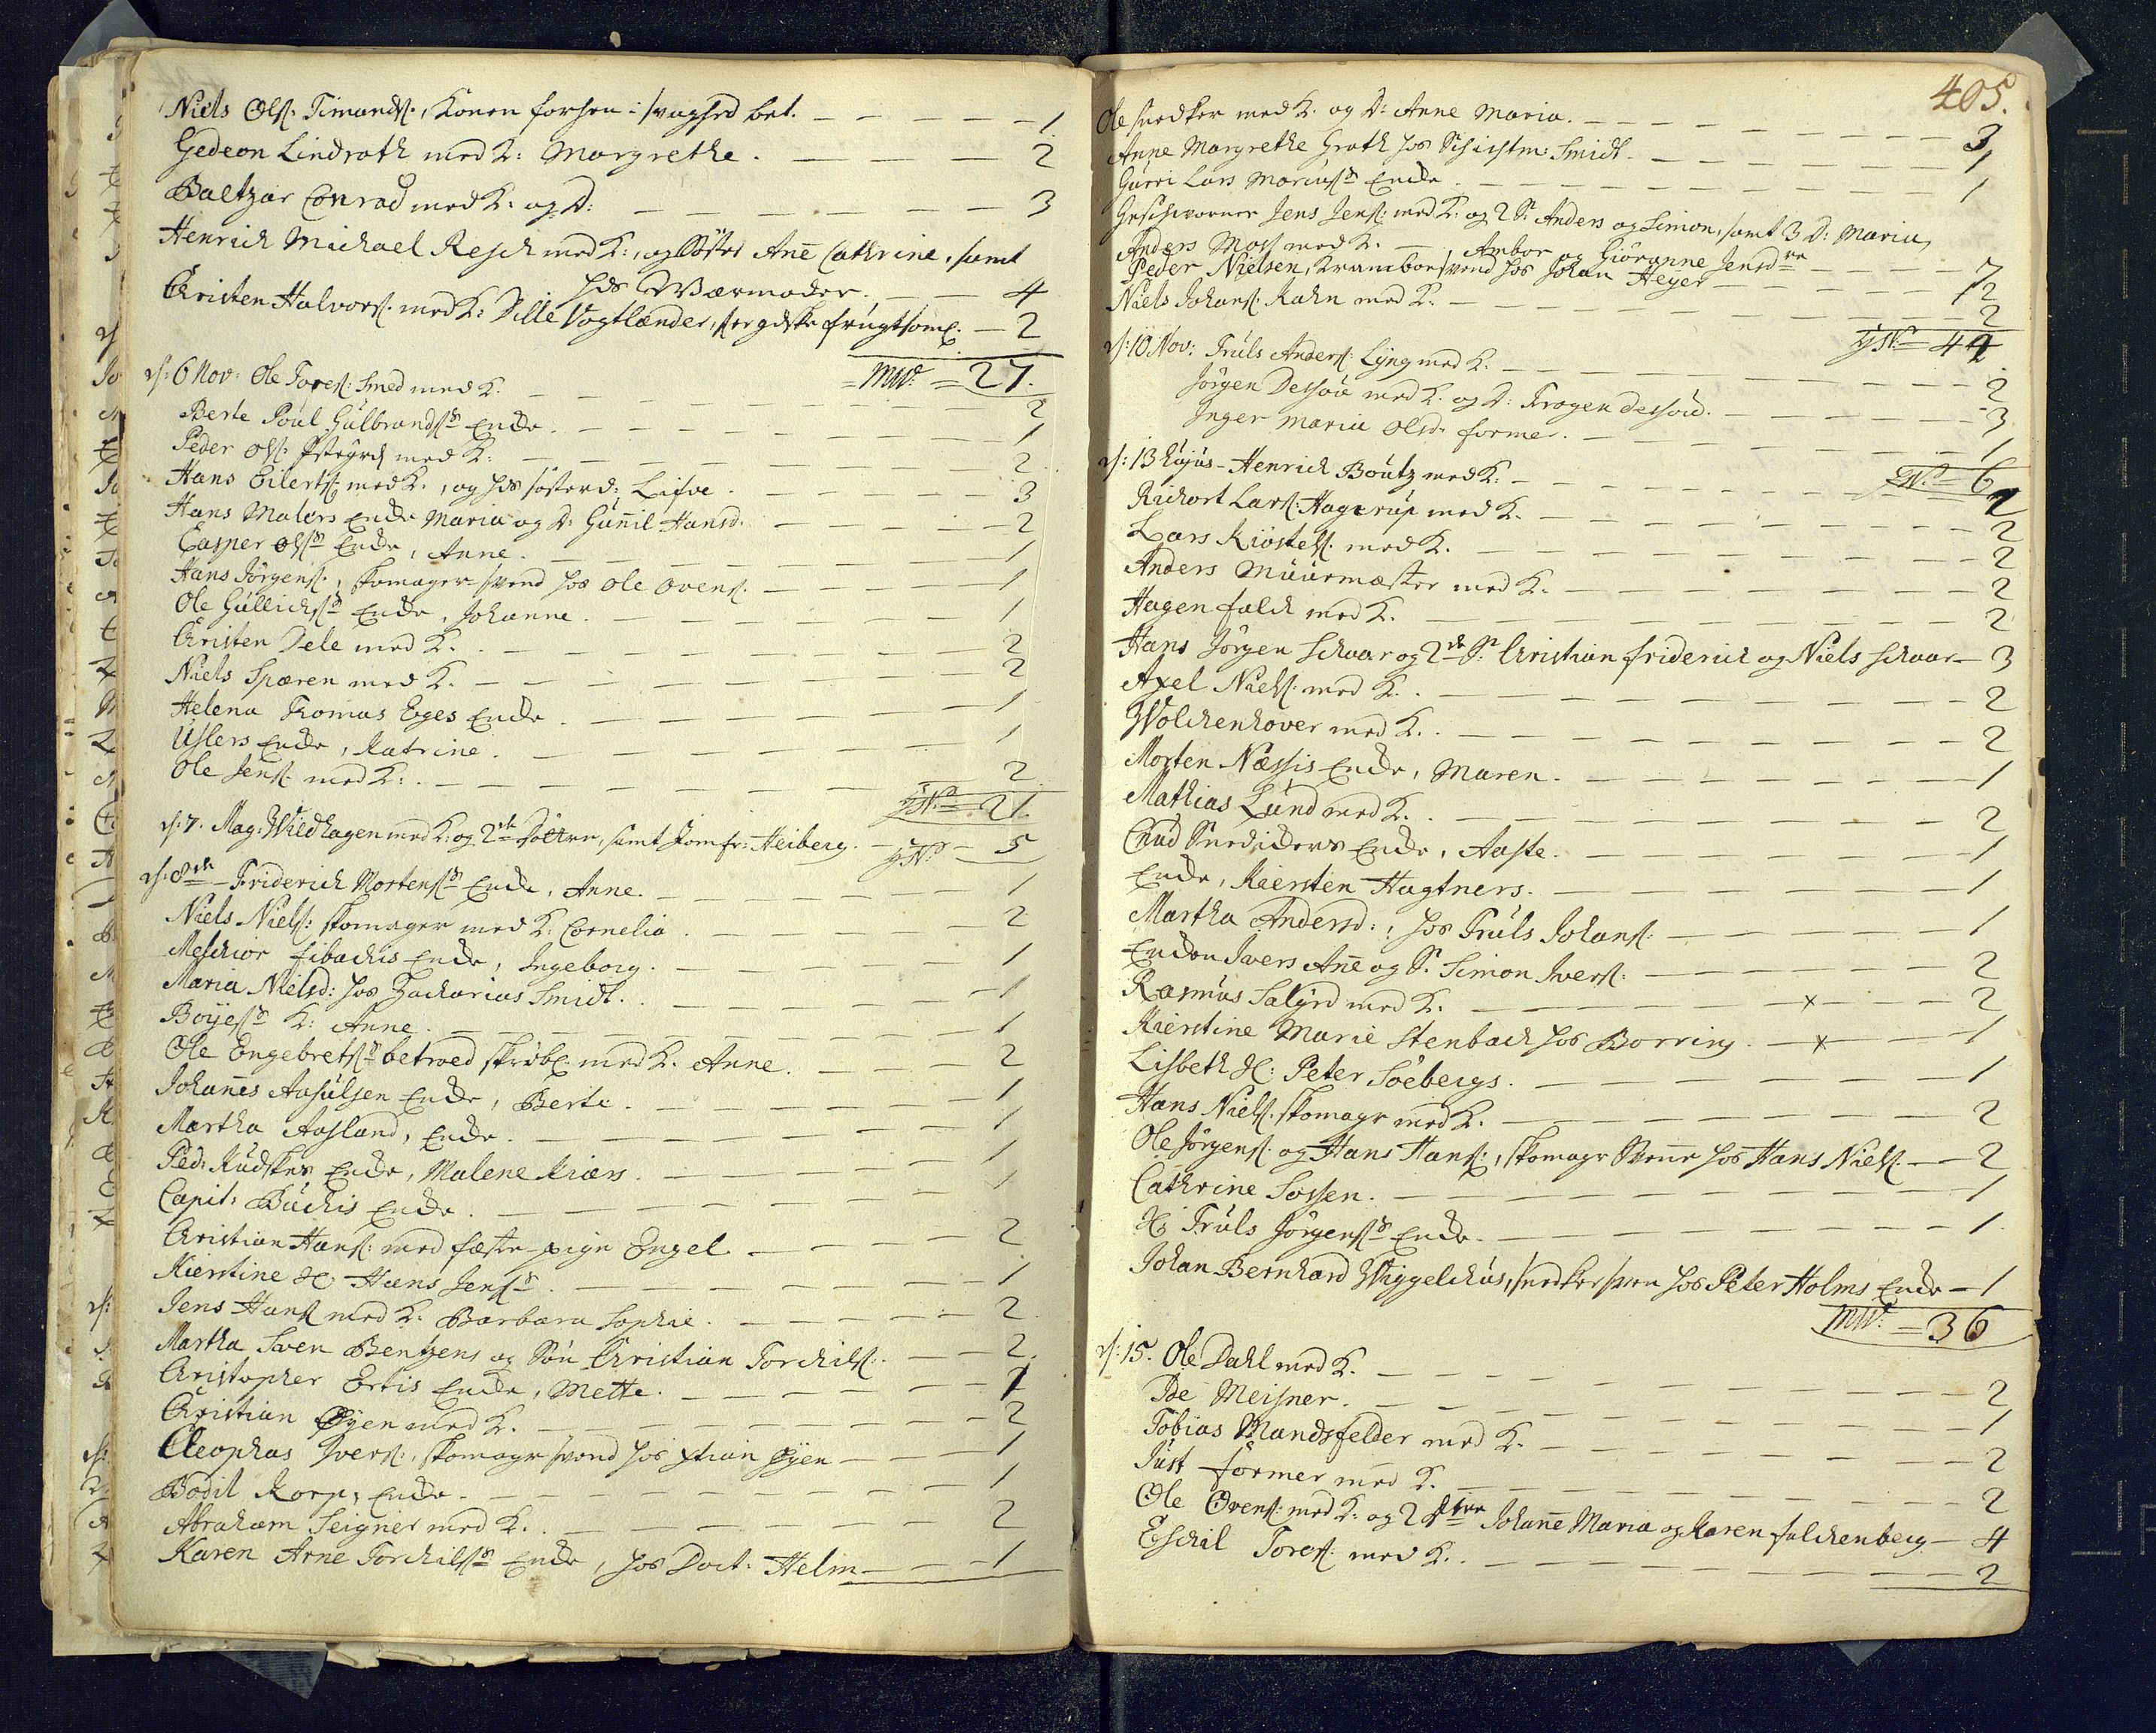 Niels Ols: Timands:, Konen forhen i svaghed bet. — — — — — 1
Gedeon Lindroth med D: Margrethe. — — — — 2
Baltzar Conrad med K: og D: — — — — — — 3
Henrich Michael Resch med K:, og Söster Anē Cathrine, samt
hds Værmoder. — — 4
Christen Halvors: med K: Dille Vogtlænder, frugtsomel: — 2
= MW. = 27.
d: 6 Nov: Ole Tores: Smed med K. — — — — — — 2
Berte Poul Gulbrands:s Enche. — — — — — — 1
Peder Ols: med K: — — — — — — 2
Hans Eilerts: med K:, og hds söster d: Lisve. — — — — 3
Hans Malers Enche Maria og D: Gunil Hansd: — — — 2
Casper Ols:s Enche, Anne. — — — — — — 1
Hans Jörgens:, skomager svend hos Ole Ovens: — — — — 1
Ole Gullichs:s Enche, Johanne. — — — — — 1
Christen Dele med K. — — — — — — 2
Niels Spæren med K. — — — — — — 2
Helena Thomas Eges Enche. — — — — — 1
Uslers Enche, Katrine. — — — — — 1
Ole Jens: med K: — — — — — — 2
21.
d: 7. Mag: Wildhagen med K: og 2de Döttre, samt Jomfr: Heiberg. — 5
d: 8de — Friderich Mortens:s Enche, Anne. — — — — — 1
Niels Niels: skomager med K: Cornelia. — — — — 2
Melchior Fibachis Enche, Ingeborg. — — — — — 1
Maria Nielsd: hos Zacharias Smidt. — — — — — 1
Boyes:s K: Anne. — — — — — — 1
Ole Engebrets:s betroed med K. Anne. — — — 2
Johanes Aasulsen Enche, Berte. — — — — — 1
Martha Aasland, Enche. — — — — — — 1
Ped: Kudskes Enche, Malene Kiærs. — — — — 1
Capit: Büchis Enche. — — — — — — 1
Christian Hans: med fæste-pige Engel. — — — — 2
Kierstine H: Hans Jens:s. — — — — — — 1
Jens Hans: med K. Barbara Sophie. — — — — 2
Martha Sven Bentzens og Sön Christian Torchils: — — 2.
Christopher Ertis Enche, Mette. — — — — — 1
Christian Öyen med K. — — — — — — 2
Cleophas Ivers:, skomager svend hos Xtian Öyen — — — 1
Bodil Korp, Enche. — — — — — — 1
Abraham Seigner med K. — — — — — — 2
Karen Arne Torchils:s Enche, hos Doct: Helm — — — 1
405.
Ole snedker med K. og D: Anne Maria. — — — — — — 3
Anne Margrethe Groth hos Schichtm: Smidt. — — — — — 1
Gurri Lars Marius:s Enche. — — — — — — 1
Geschworner Jens Jens: med K: og 2 S: Anders og Simon, samt 3 D: Maria,
Ambor og Giöranne Jensd:re — — — 7
Anders Moss med K. — — 2
Peder Nielsen, Kramboesvend hos Johan Heyer — — — — 1
Niels Johans: Rahn med K. — — — — — — 2
44
d: 10 Nov: Truls Anders: Lyng med K. — — — — — — 2
Jörgen Dessau med K. og D: Frogen dessau. — — — — 3
Inger Maria Olsd: former. — — — — — — 1
6
d: 13 hujus — Henrich Boutz med K: — — — — — — 2
Richort Lars: Hagerup med K. — — — — — — 2
Lars Kiöstels: med K. — — — — — — 2
Anders Muurmæster med K. — — — — — — 2
Hagen falch med K. — — — — — — 2
Hans Jörgen Schaar og 2de S: Christian friderich og Niels Schaar — 3
Axel Niels: med K. — — — — — — 2
Wolchenhover med K. — — — — — — 2
Morten Næssis Enche, Maren. — — — — — — 1
Mathias Lund med K. — — — — — — 2
Chud Snediders Enche, Aaste. — — — — — — 1
Enche, Kiersten Hagtners. — — — — — — 1
Martha Andersd:, hos Truls Johans: — — — — — 1
Enchen Ivers Anē og S. Simon Ivers: — — — — — 2
Rasmus Salyrd med K. — — — — — x — — 2
Kierstine Marie Stenbach hos Borring. — x — — 1
Lisbeth H: Peter Söebergs. — — — — — — 1
Hans Niels: skomager med K. — — — — — — 2
Ole Jörgens: og Hans Hans:, skomager Svenne hos Hans Niels: — — 2
Cathrine Sossen. — — — — — — 1
H: Truls Jörgens:s Enche. — — — — — — 1.
Johan Bernhard Wiggelchus, snedker sven hos Peter Holms Enche — 1
MW. = 36
d: 15. Ole Dahl med K. — — — — — — 2
De Meisner. — — — — — — 1
Tobias Mandsfelder med K. — — — — — — 2
Just former med K. — — — — — — 2
Ole Ovens: med K: og 2 Johanē Maria og Karen falchenberg — 4
Eschil Tores: med K. — — — — — — 2